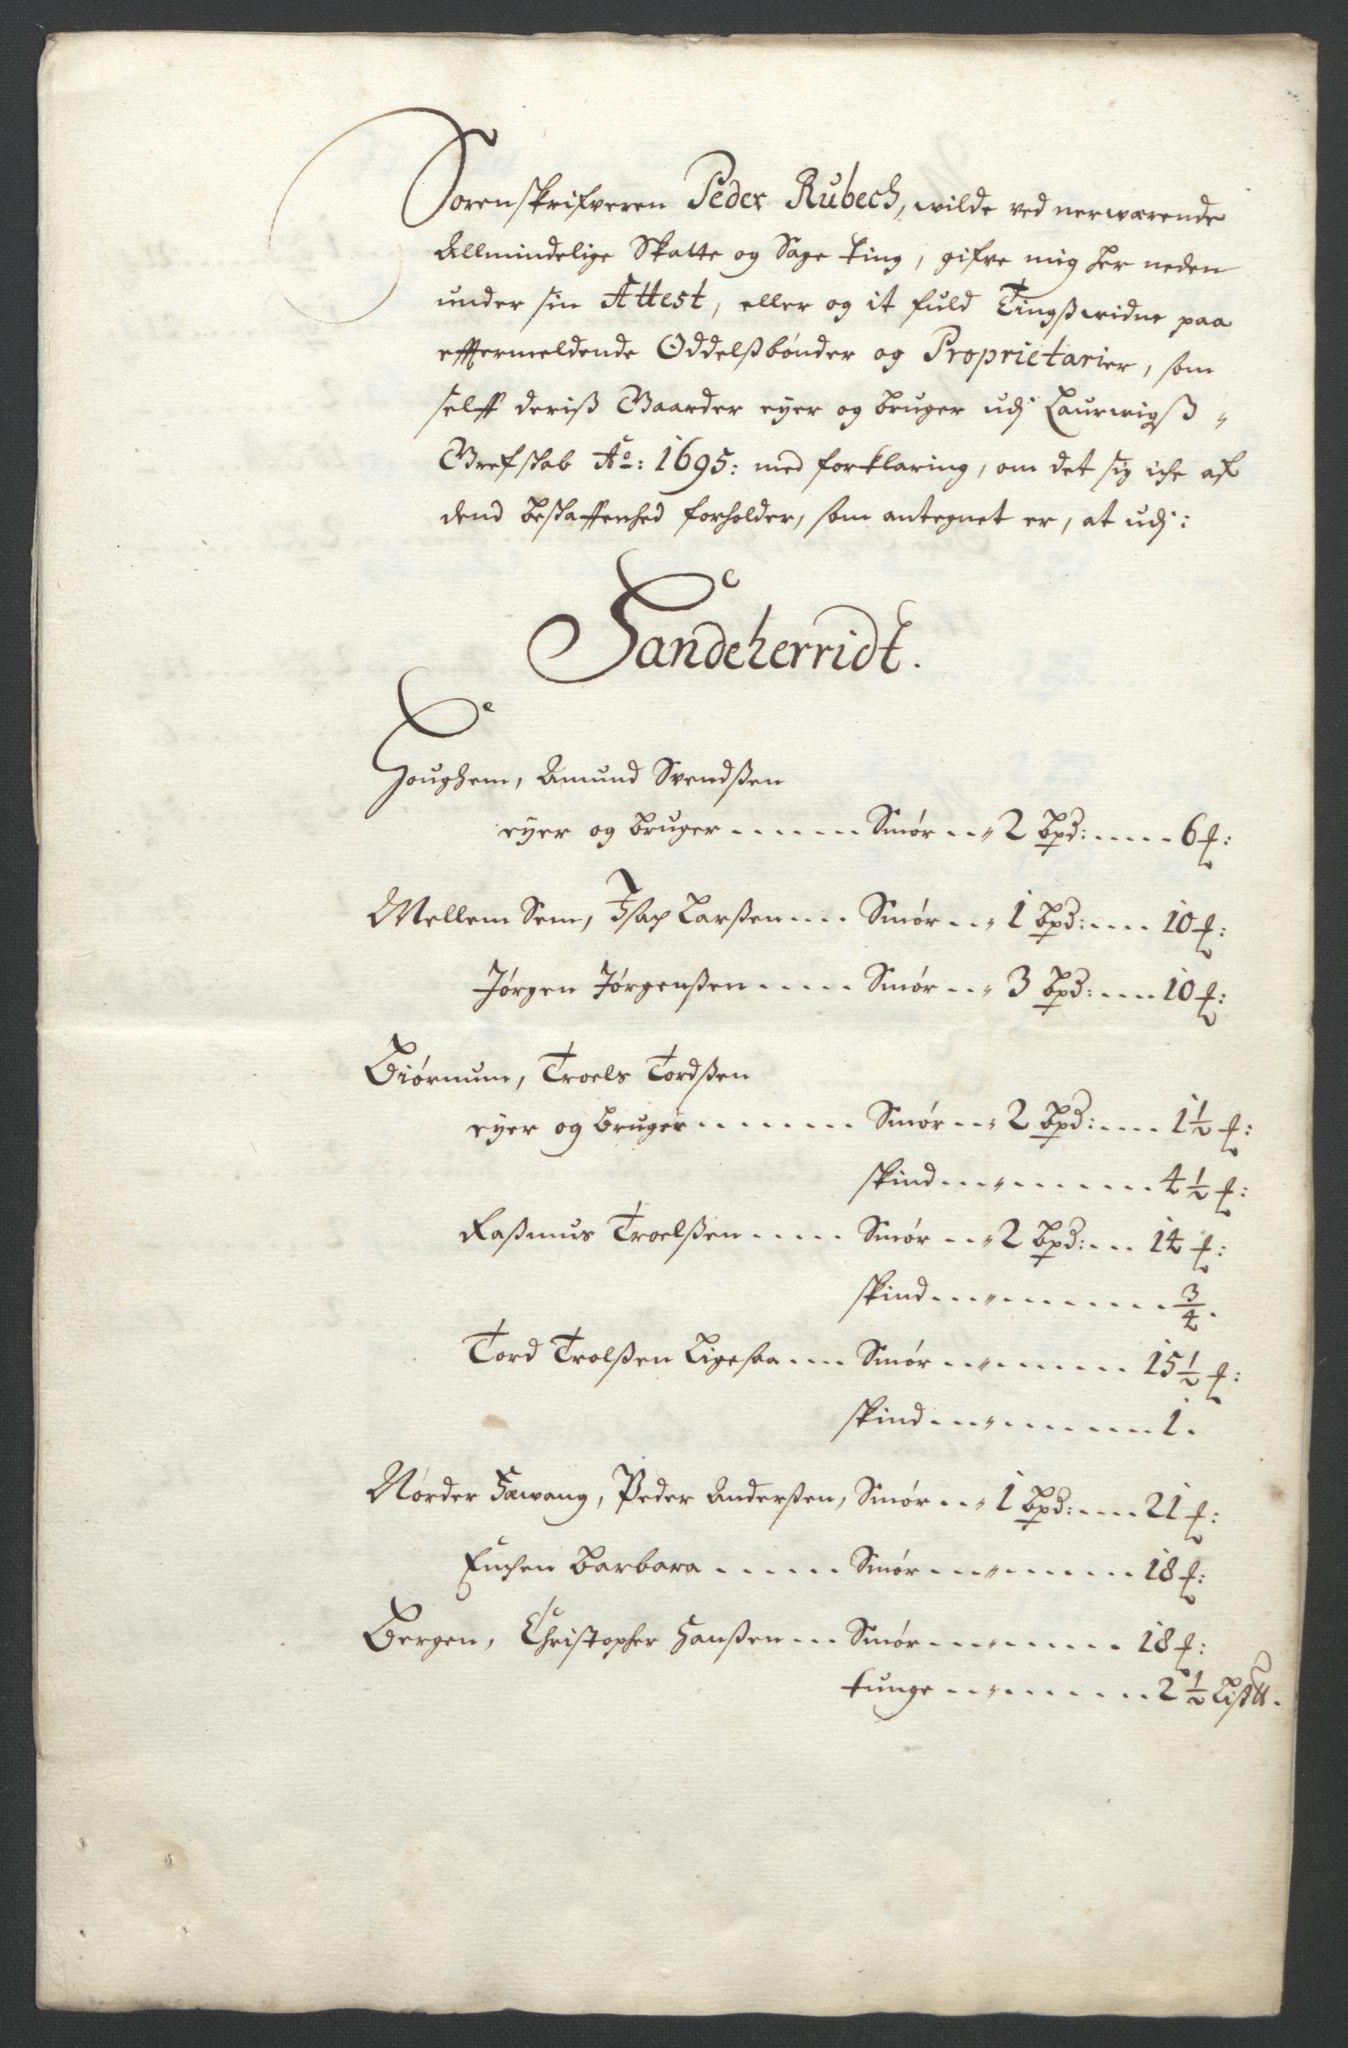 Sorenskrifveren Peder Rubech, wilde ved nerwærende
Allmindelige Skatte og Sage ting, gifve mig her neden
under sin Attest, eller og it fuld Tingsswidne paa
effermeldende Oddelssbønder og Proprietarier, som
selff deriss Gaarder eyer og bruger udj Laurwigss
Grefskab Ao: 1695: med forklaring, om det sig iche af
dend beskaffenhed forholder, som antegnet er, at udj:
Sandeherridt.
Houghem, Amund Svendssen
eyer og bruger ...... Smør .. 2 bpd: ..... 6 f:
Mellem Sem, Isach Larssen .... Smør .. 1 bpd: .... 10 f:
Jørgen Jørgenssen ..... Smør .. 3 bpd: .... 10 f:
Biørnum, Troels Tordssen
eyer og bruger ....... Smør .. 2 bpd: .... 1½ f:
skind ... ....... 4½ f:
Rassmus Troelssen ..... Smør .. 2 bpd: ... 14 f:
skind ... ........ ¾.
Tord Trolssen Ligesaa .... Smør .. ...... 15½ f:
skind ... ....... 1.
Nørder Hawang, Peder Anderssen, Smør .. 1 bpd: .... 21 f:
Enchen Barbara ...... Smør ... ...... 18 f:
Bergen, Christopher Hanssen ... Smør ... ...... 18 f:
tunge .. ....... 2½ Lispd.